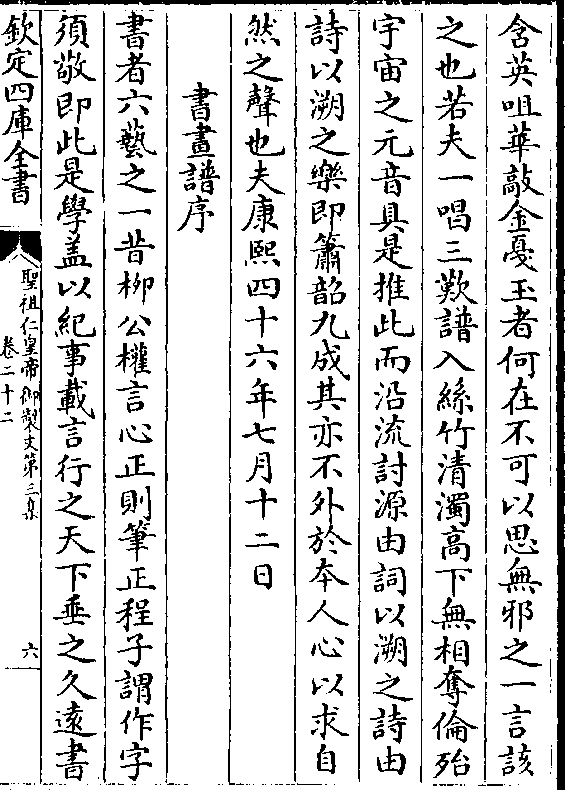 含英咀華敲金戞玉者何在不可以思無邪之一言該
之也若夫一唱三歎譜入絲竹清濁高下無相奪倫殆
宇宙之元音具是推此而沿流討源由詞以溯之詩由
詩以溯之樂即簫韶九成其亦不外於本人心以求自
然之聲也夫康熙四十六年七月十二日
書畫譜序
書者六藝之一昔栁公權言心正則筆正程子謂作字
須敬即此是學盖以紀事載言行之天下垂之久遠書
欽定四庫全書
聖祖仁皇帝御製文第三集
卷二十二
六